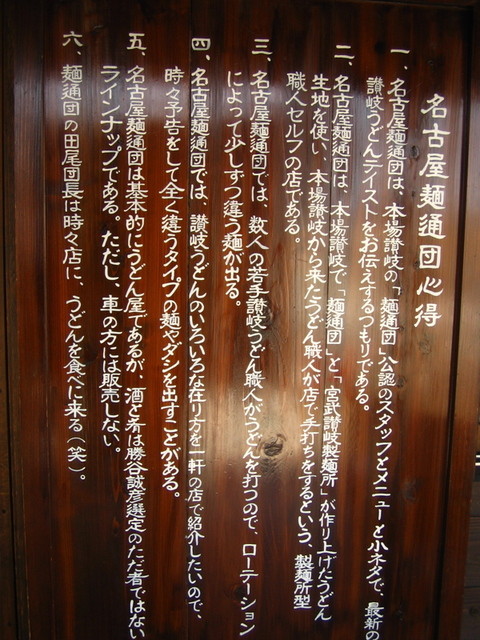 名古屋麺通団心得
一、名古屋麺通団は、本場讃岐の「麺通団」公認のスタッフとメニューと小ネタで、最新の
讃岐うどんテイストをお伝えするつもりである。
二、名古屋麺通団は、本場讃岐で「麺通団」と「宮武讃岐製麺所」が作り上げたうどん
生地を使い、本場讃岐から来たうどん職人が店で手打ちをするという、製麺所型
職人セルフの店である。
三、名古屋麺通団では、数人の若手讃岐うどん職人がうどんを打つので、ローテーション
によって少しずつ違う麺が出る。
四、名古屋麺通団では、讃岐うどんのいろいろな在り方を一軒の店で紹介したいので、
時々予告をして全く違うタイプの麺やダシを出すことがある。
五、名古屋麺通団は基本的にうどん屋であるが、酒と肴は勝谷誠彦選定のただ者ではない
ラインナップである。ただし、車の方には販売しない。
六、麺通団の田尾団長は時々店に、うどんを食べに来る（笑）。